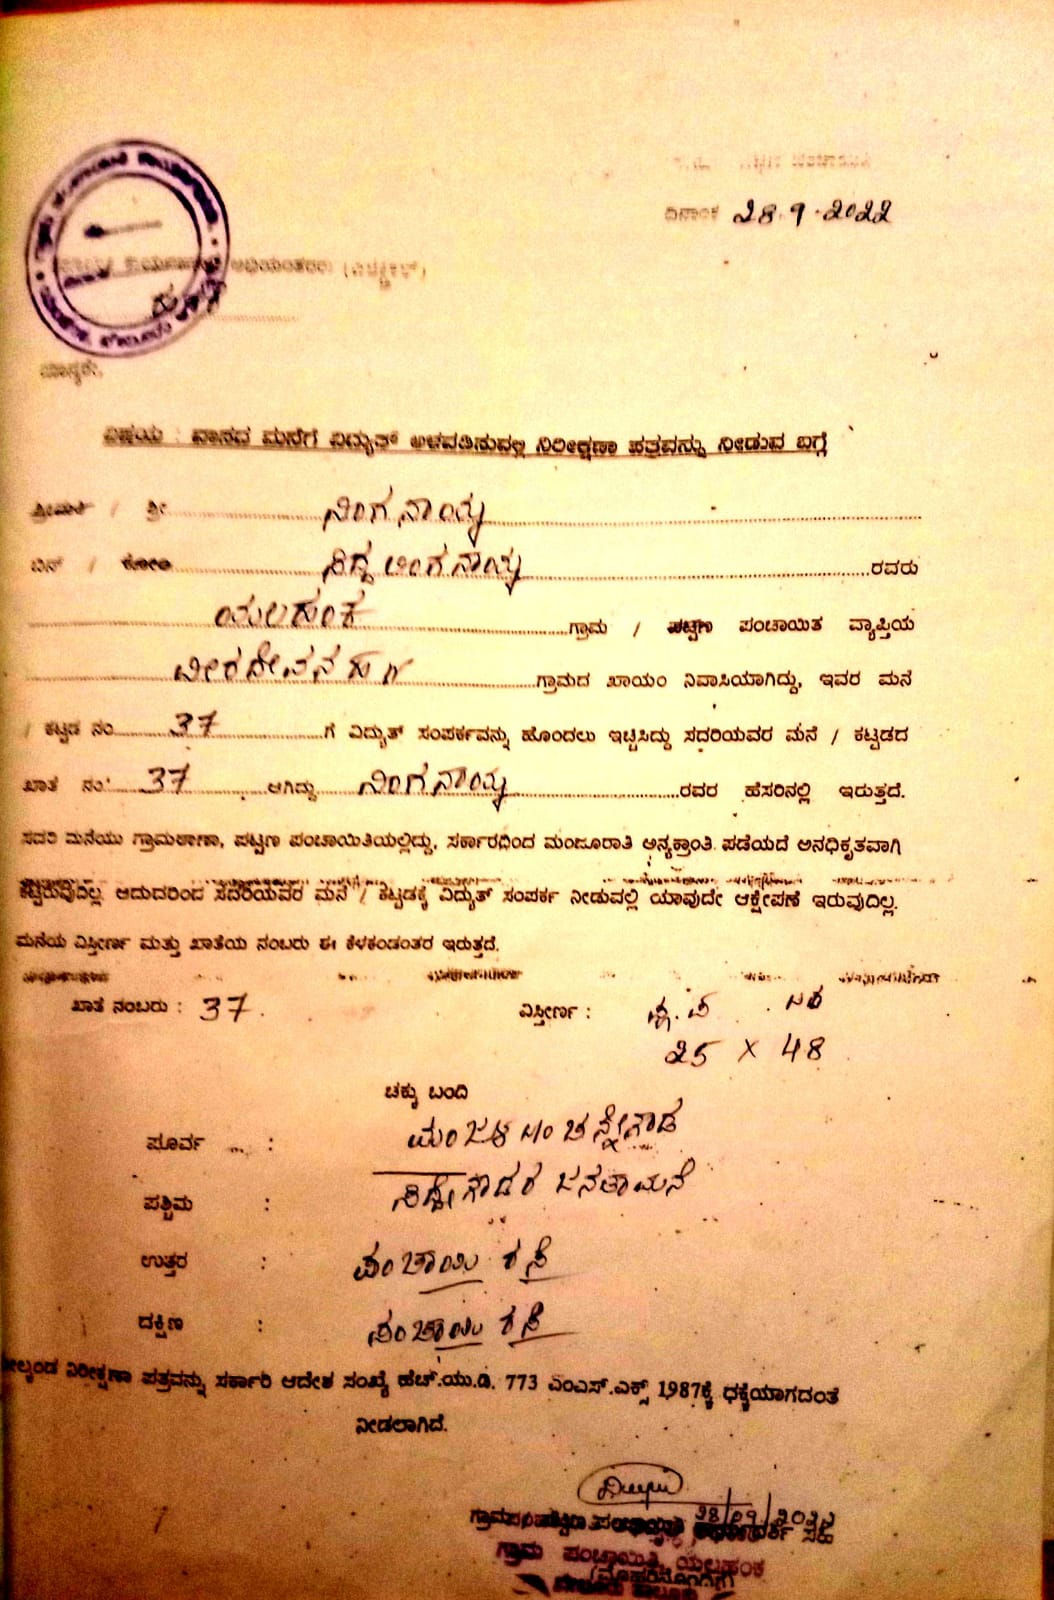 ದಿನಾಂಕ 28.9.2022
ಅಭಿಯಂತರರು (ವಿದ್ಯುತ್)
ಮಾನ್ಯರೇ,
ವಿಷಯ : ವಾಸದ ಮನೆಗೆ ವಿದ್ಯುತ್ ಅಳವಡಿಸುವಲ್ಲಿ ನಿರೀಕ್ಷಣಾ ಪತ್ರವನ್ನು ನೀಡುವ ಬಗ್ಗೆ
ಶ್ರೀಮತಿ / ಶ್ರೀ ನಿಂಗನಾಯ್ಕ
ಬಿನ್ / ಕೋಂ ಸಿದ್ದಲಿಂಗನಾಯ್ಕ ರವರು
ಯಲಹಂಕ ಗ್ರಾಮ / ಪಟ್ಟಣ ಪಂಚಾಯಿತ ವ್ಯಾಪ್ತಿಯ
ವೀರದೇವನಹಳ್ಳಿ ಗ್ರಾಮದ ಖಾಯಂ ನಿವಾಸಿಯಾಗಿದ್ದು, ಇವರ ಮನೆ
/ ಕಟ್ಟಡ ನಂ 37 ಗೆ ವಿದ್ಯುತ್ ಸಂಪರ್ಕವನ್ನು ಹೊಂದಲು ಇಚ್ಚಿಸಿದ್ದು ಸದರಿಯವರ ಮನೆ / ಕಟ್ಟಡದ
ಖಾತೆ ನಂ 37 ಆಗಿದ್ದು ನಿಂಗನಾಯ್ಕ ರವರ ಹೆಸರಿನಲ್ಲಿ ಇರುತ್ತದೆ.
ಸದರಿ ಮನೆಯು ಗ್ರಾಮಠಾಣಾ, ಪಟ್ಟಣ ಪಂಚಾಯಿತಿಯಲ್ಲಿದ್ದು, ಸರ್ಕಾರದಿಂದ ಮಂಜೂರಾತಿ ಅನ್ಯಕ್ರಾಂತಿ ಪಡೆಯದೆ ಅನಧಿಕೃತವಾಗಿ
ಕಟ್ಟಿರುವುದಿಲ್ಲ. ಆದುದರಿಂದ ಸದರಿಯವರ ಮನೆ / ಕಟ್ಟಡಕ್ಕೆ ವಿದ್ಯುತ್ ಸಂಪರ್ಕ ನೀಡುವಲ್ಲಿ ಯಾವುದೇ ಆಕ್ಷೇಪಣೆ ಇರುವುದಿಲ್ಲ.
ಮನೆಯ ವಿಸ್ತೀರ್ಣ ಮತ್ತು ಖಾತೆಯ ನಂಬರು ಈ ಕೆಳಕಂಡಂತರ ಇರುತ್ತದೆ.
ಖಾತೆ ನಂಬರು : 37. ವಿಸ್ತೀರ್ಣ :
25 X 48
ಚಕ್ಕು ಬಂದಿ
ಪೂರ್ವ : ಚನ್ನೇಗೌಡ
ಪಶ್ಚಿಮ : ಸಿದ್ದೇಗೌಡರ ಜನತಾಮನೆ
ಉತ್ತರ : ಪಂಚಾಯಿ ರಸ್ತೆ
ದಕ್ಷಿಣ : ಪಂಚಾಯಿ ರಸ್ತೆ
ಮೇಲ್ಕಂಡ ನಿರೀಕ್ಷಣಾ ಪತ್ರವನ್ನು ಸರ್ಕಾರಿ ಆದೇಶ ಸಂಖ್ಯೆ ಹೆಚ್.ಯು.ಡಿ. 773 ಎಂಎಸ್.ಎಕ್ಸ್ 1987ಕ್ಕೆ ಧಕ್ಕೆಯಾಗದಂತೆ
ನೀಡಲಾಗಿದೆ.
28/09/2022
ಸಹಿ
ಗ್ರಾಮ ಪಂಚಾಯಿತಿ, ಯಲಹಂಕ